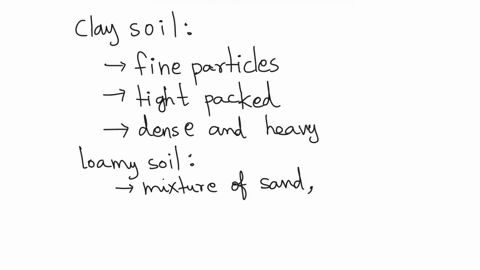 Clay soil:
→ fine particles
→ tight packed
→ dense and heavy
loamy soil:
→ mixture of sand,